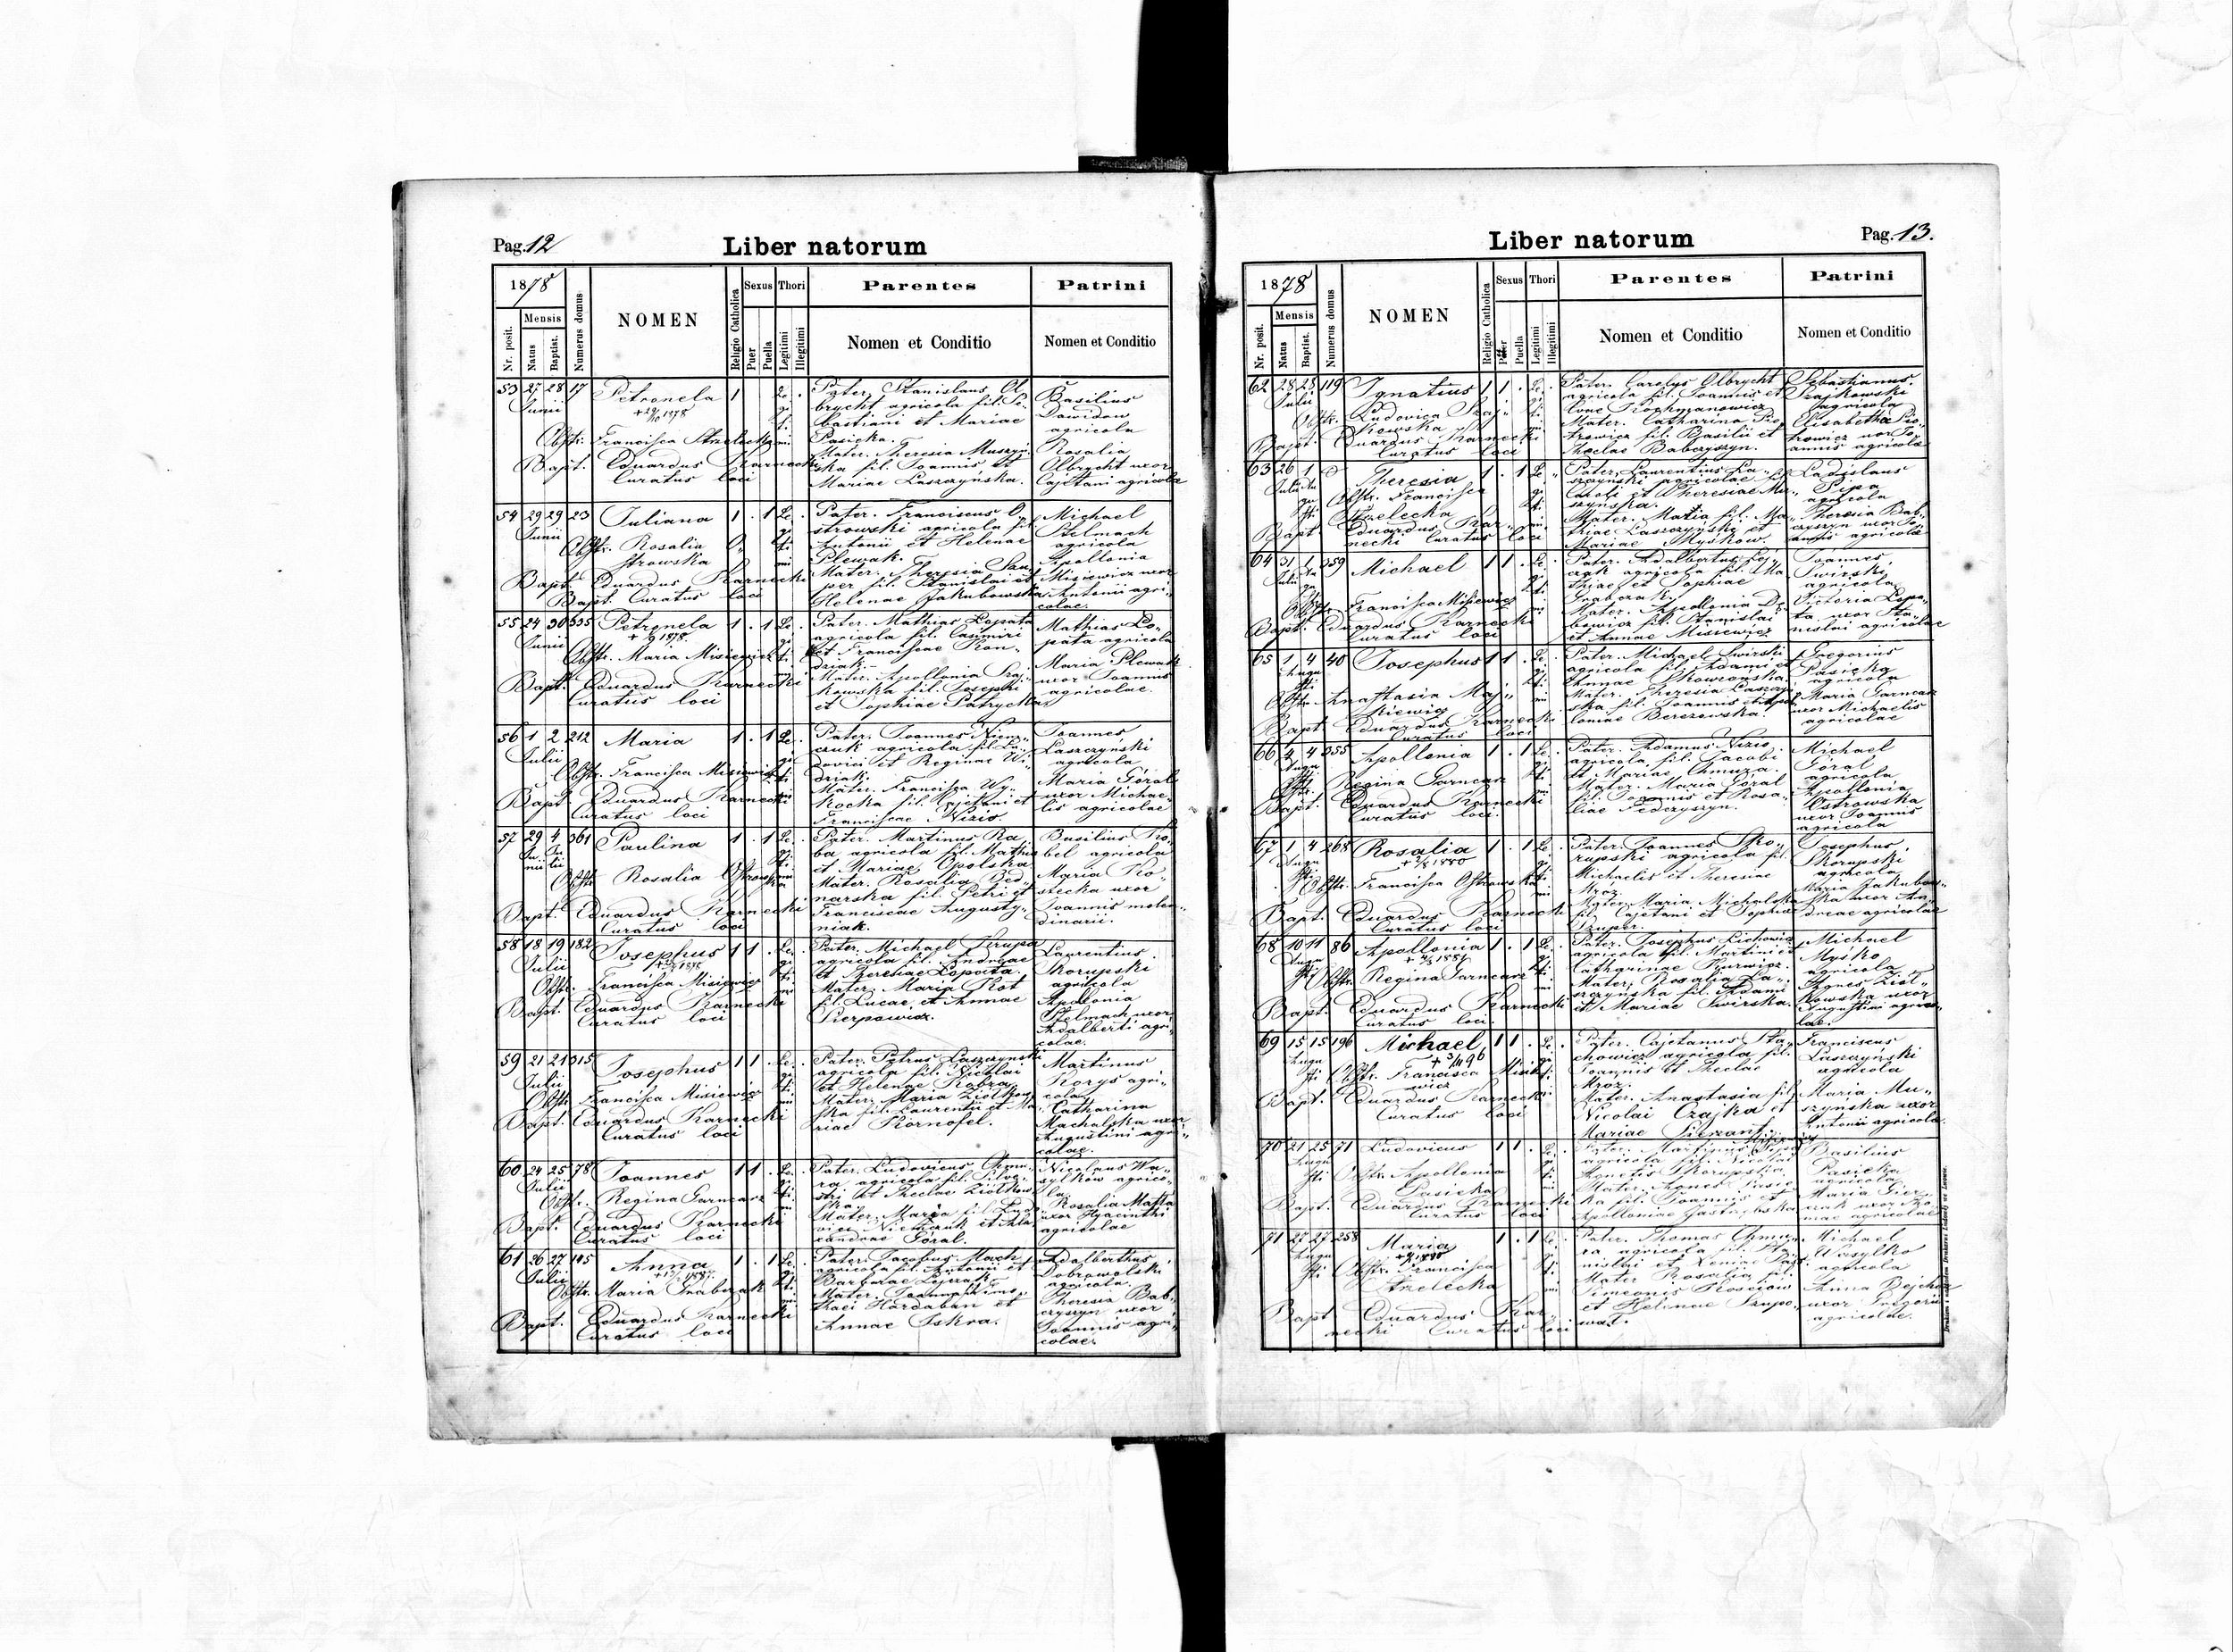 Pag. 12
Liber natorum
1878
Nr. posit.
Mensis
Natus
Baptist.
Numerus domus
NOMEN
Religio Catholica
Sexus
Puer
Puella
Thori
Legitimi
Illegitimi
Parentes
Nomen et Conditio
Patrini
Nomen et Conditio
53 28 17 Petronela 1
Junii
Obstr. Francisca Strzelecka
Bapt. Eduardus Karnecki
Curatus loci
Pater Stanislaus Ol
brycht agricola fil. Se
bastiani et Mariae
Pasieka.
Mater. Theresia Muszyń
ska fil. Joannis et
Mariae Laszczyńska.
Basilius
agricola
Rosalia
Olbrycht uxor
Cajetani agricola
54 29 29 23 Juliana 1 . 1
Junii
Obstr. Rosalia O
strowska
Bapt. Eduardus Karnecki
Bapt. Curatus loci
Pater. Franciscus O
strowski agricola fil
Antonii et Helenae
Plewak.
Mater. Theresia
fil. Stanislai et
Helenae Jakubowska
Michael
Stelmach
agricola
Apollonia
Misiewicz uxor
Antonii agri
colae.
55 24 30 Petronela 1 . 1
Junii
Obstr. Maria Misiewicz
Bapt. Eduardus Karnecki
Curatus loci
Pater. Mathias Lopata
agricola fil. Casimiri
et Franciscae Kon
dziak.
Mater. Apollonia Szaj
kowska fil. Josephi
et Sophiae Patrycka
Mathias Lo
pata agricola
Maria Plewak
uxor Joannis
agricolae.
56 1 2 212 Maria 1 . 1
Julii
Obstr. Francisca Misiewicz
Bapt. Eduardus Karnecki
Curatus loci
Pater. Joannes
agricola fil. Lu
dovici et Reginae
Mater. Francisca Wy
socka fil. Cajetani et
Franciscae Nizio.
Joannes
Laszczyński
agricola
Maria Góral
uxor Michae
lis agricolae
57 29 4 361 Paulina 1 . 1
Obstr. Rosalia Ostrowska
Bapt. Eduardus Karnecki
Curatus loci
Pater. Martinus Ra
ba agricola fil. Mathia
et Mariae Opolska
Mater. Rosalia Bed
narska fil. Petri et
Franciscae Augusty
niak.
Basilius
agricola
Maria Ko
stecka uxor
Joannis molen
dinarii.
58 18 19 182 Josephus 1 1 .
Julii
Obstr. Francisca Misiewicz
Bapt. Eduardus Karnecki
Curatus loci
Pater. Michael
agricola fil. Andreae
et Theresiae
Mater. Maria Kot
fil. Lucae et Annae
Laurentius
Skorupski
agricola
Apollonia
Stelmach uxor
Adalberti agri
colae.
59 21 21 315 Josephus 1 1 .
Julii
Obstr. Francisca Misiewicz
Bapt. Eduardus Karnecki
Curatus loci
Pater. Petrus Laszczyński
agricola fil. Nicolai
et Helenae
Mater. Maria Ziolkow
ska fil. Laurentii et Ma
riae Kornofel.
Martinus
Korys agri
cola
Catharina
uxor
Augustini agri
colae.
60 24 25 78 Joannes 1 1 .
Julii
Obstr. Regina Garncarz
Bapt. Eduardus Karnecki
Curatus loci
Pater. Ludovicus Chmu
ra agricola fil. Silve
stri et Theclae Ziolkow
ska
Mater. Maria fil. Ludo
vici et Ale
xandrae Góral.
Nicolaus Wa
sylków agrico
la
Rosalia
uxor Hyacinthi
agricolae
61 26 27 145 Anna 1 . 1
Julii
Obstr. Maria Grabczak
Bapt. Eduardus Karnecki
Curatus loci
Pater. Jacobus Mach
agricola fil. Antonii et
Barbarae
Mater. Joanna
et
Annae Iskra.
Adalbertus
Dobrowolski
agricola
Theresia Bab
czyszyn uxor
Joannis agri
colae.
Liber natorum
Pag. 13.
1878
Nr. posit.
Mensis
Natus
Baptist.
Numerus domus
NOMEN
Religio Catholica
Sexus
Puer
Puella
Thori
Legitimi
Illegitimi
Parentes
Nomen et Conditio
Patrini
Nomen et Conditio
62 28 28 119 Ignatius 1 1 .
Julii
Obstr. Ludovica Szaj
kowska
Bapt. Eduardus Karnecki
Curatus loci
Pater. Carolus Olbrycht
agricola fil. Joannis et
Mater. Catharina Pio
trowicz fil. Basilii et
Theclae Babczyszyn.
Sebastianus
Szajkowski
agricola
Elisabetha Pio
trowicz uxor Jo
annis agricolae
63 26 1 Theresia 1 . 1
Obstr. Francisca
Strzelecka
Bapt. Eduardus Kar
necki Curatus loci
Pater. Laurentius La
szczyński agricola fil
Caroli et Theresiae Mu
szyńska.
Mater. Maria fil. Ma
thiae Laszczyński et
Mariae Myśkow.
Ladislaus
Pipa
agricola
Theresia Bab
czyszyn uxor Jo
annis agricolae
64 31 1 359 Michael 1 1 .
Obstr. Francisca Misiewicz
Bapt. Eduardus Karnecki
Curatus loci
Pater. Adalbertus
agricola fil. Ma
thiae et Sophiae
Grabczak.
Mater. Apollonia
fil. Stanislai
et Annae Misiewicz
Joannes
Swirski
agricola
Victoria Lopa
ta uxor Sta
nislai agricolae
65 1 4 40 Josephus 1 1 .
Obstr. Anastasia
Bapt. Eduardus Karnecki
Curatus loci
Pater. Michael Swirski
agricola fil. Adami et
Annae Skowrońska.
Mater. Theresia Laszczyń
ska fil. Joannis et Apol
loniae Berezowska.
Gregorius
Pasieka
agricola
Maria Garncarz
uxor Michaelis
agricolae
66 4 4 355 Apollonia 1 . 1
Regina Garncarz
Bapt. Eduardus Karnecki
Curatus loci.
Pater. Adamus Nizio
agricola fil. Jacobi
et Mariae
Mater. Maria Góral
fil. Joannis et Rosa
liae Fedczyszyn.
Michael
Góral
agricola
Apollonia
Ostrowska
uxor Joannis
agricola
67 1 4 268 Rosalia 1 . 1
Obstr. Francisca Ostrowska
Bapt. Eduardus Karnecki
Curatus loci
Pater. Joannes Sko
rupski agricola fil.
Michaelis et Theresiae
Mróz.
Mater. Maria Michalska
fil. Cajetani et Sophiae
Szuper.
Josephus
Skorupski
agricola
Maria Jakubow
ska uxor An
dreae agricolae
68 10 11 86 Apollonia 1 . 1
Obstr. Regina Garncarz
Bapt. Eduardus Karnecki
Curatus loci.
Pater. Josephus
agricola fil. Martini et
Catharinae
Mater. Rosalia La
szczyńska fil. Adami
et Mariae Swirska.
Michael
Myśko
agricola
Agnes Ziol
kowska uxor
Augustini agrico
lae.
69 15 15 196 Michael 1 1 .
Obstr. Francisca Misie
wicz
Bapt. Eduardus Karnecki
Curatus loci
Pater. Cajetanus Sta
chowicz agricola fil.
Joannis et Theclae
Mróz.
Mater. Anastasia fil
Nicolai Czajka et
Mariae
Franciscus
Laszczyński
agricola
Maria Mu
szyńska uxor
Antonii agricolae
70 21 25 71 Ludovicus 1 1 .
Obstr. Apollonia
Pasieka
Bapt. Eduardus Karnecki
Curatus loci
Pater. Martinus
agricola fil. Nicolai
Agnetis Skorupska
Mater. Agnes Pasie
ka fil. Joannis et
Apolloniae Jastrzębska
Basilius
Pasieka
agricola
Maria
uxor
agricolae
71 27 27 258 Maria 1 . 1
Obstr. Francisca
Strzelecka
Bapt. Eduardus Kar
necki Curatus loci
Pater. Thomas Chmu
ra agricola fil. Sta
nislai et Xeniae
Mater Rosalia fil.
Simeonis Kosciów
et Helenae
Michael
Wasylko
agricola
Anna
uxor Gregorii
agricolae.